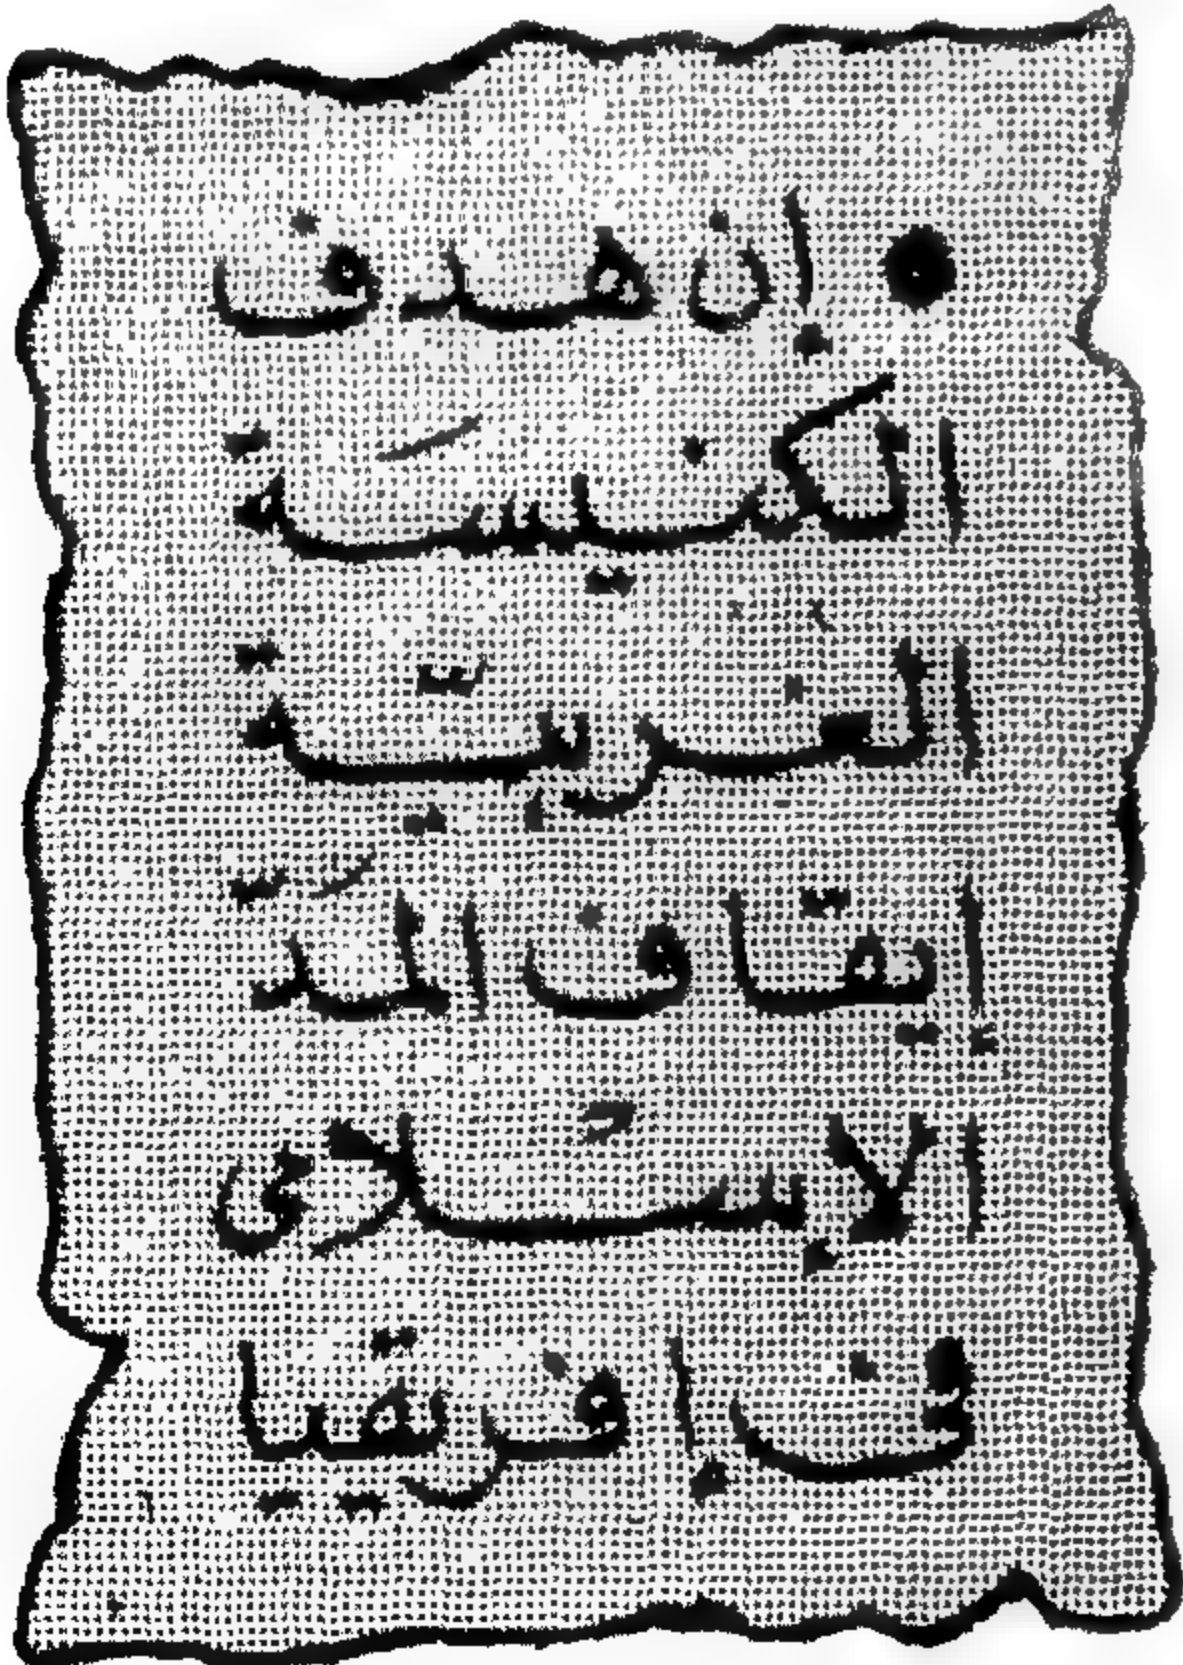 ● إن هدف
الكنيسة
الغربيّة
إيقاف المدّ
الإسلامى
فى إفريقيا